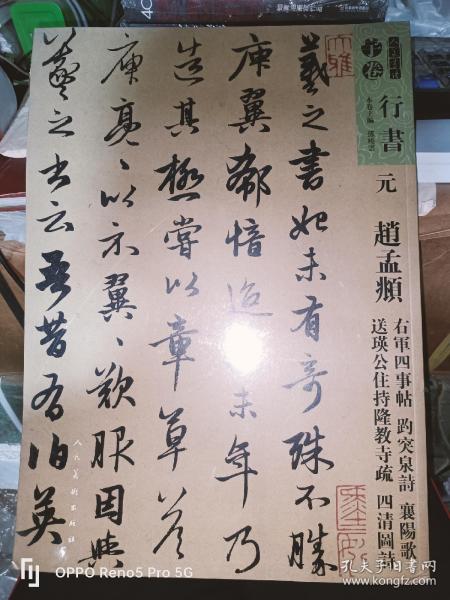 羲之書始未有奇殊不勝
庾翼郗愔迨其末年乃
造其極嘗以章草答
庾亮亮以示翼翼歎服因與
羲之書云吾昔有伯英
行書
元
趙孟頫
右軍四事帖 趵突泉詩 襄陽歌
送瑛公住持隆教寺疏 四清圖詩
人民美術出版社
OPPO Reno5 Pro 5G
孔夫子旧书网
kongfz.com